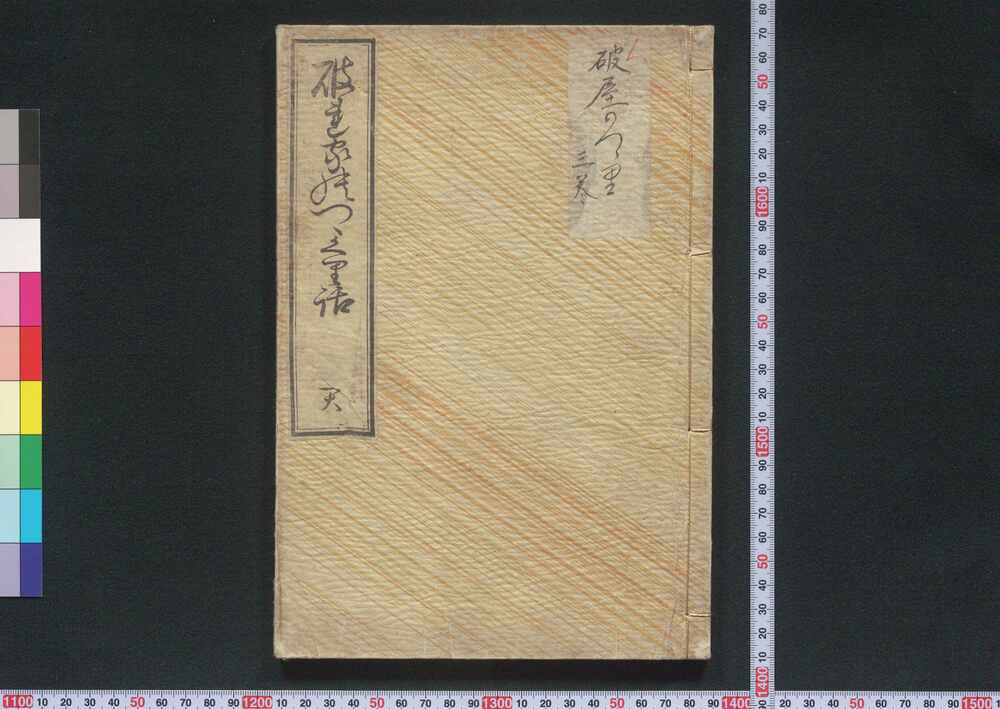 破屋のつゝ里
三巻
破れ家のつゝくり話
天
80 70 60 50 40 30 20 10 1600 90 80 70 60 50 40 30 20 10 1500 90 80 70 60 50 40 30 20 10 1400 90
1100 10 20 30 40 50 60 70 80 90 1200 10 20 30 40 50 60 70 80 90 1300 10 20 30 40 50 60 70 80 90 1400 20 30 40 50 60 70 80 90 1500